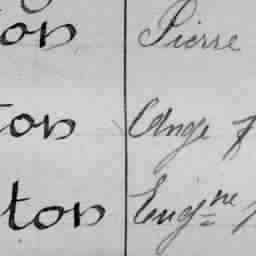 on Pierre
ton Ange
ton Eug=ne